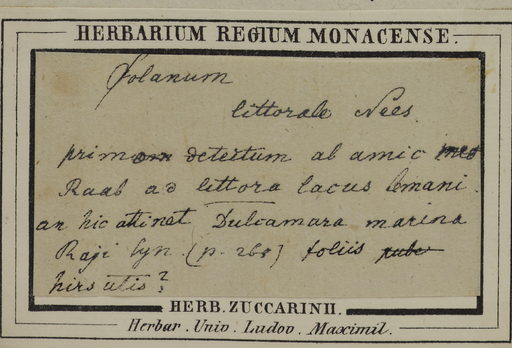 HERBARIUM REGIUM MONACENSE.
Solanum
littorale Nees.
detectum ab amic
Raab ad littora lacus lemani.
an hic Dulcamara marina
Raji Syn. (p. 265) foliis
hirsutis?
HERB. ZUCCARINII.
Herbar. Univ. Ludov. Maximil.